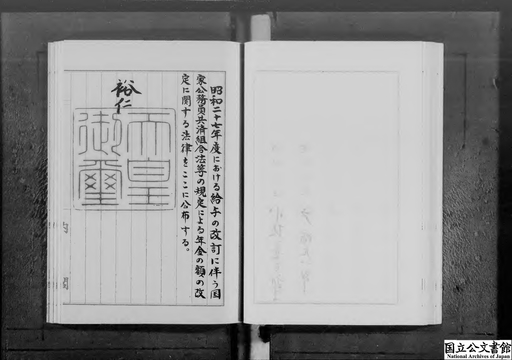 昭和二十七年度における給与の改訂に伴う国
家公務員共済組合法等の規定による年金の額の改
定に関する法律をここに公布する。
裕仁
天皇
御璽
国立公文書館
National Archives of Japan